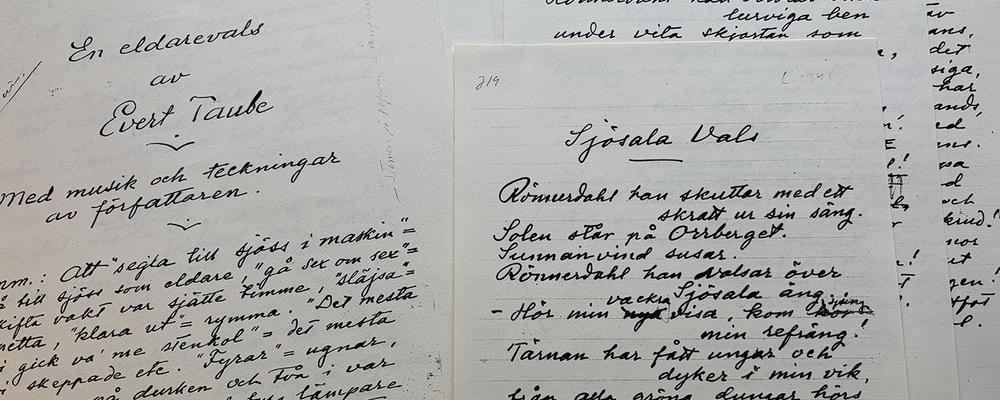 En eldarevals
av
Evert Taube
Med musik och teckningar
av författaren.
nm.: Att "segla till sjöss i maskin"=
till sjöss som eldare, "gå sex om sex"=
skifta vakt var sjätte timme, "släjsa"=
"klara ut"= rymma. "Det mesta
gick va' me stenkol"= det mesta
skeppade etc. "Fyrar"= ugnar,
durken och två i var
lämpare
lurviga ben
under vita skjortan som
219
Sjösala Vals
Rönnerdahl han skuttar med ett
skratt ur sin säng.
Solen står på Orrberget.
Sunnanvind susar.
Rönnerdahl han valsar över
Sjösala äng.
vackra sjung
- Hör min nya visa, kom hör
min refräng!
Tärnan har fått ungar och
dyker i min vik,
från alla gröna dungar hörs
av
ans,
det
siga,
har
ands,
ed
och